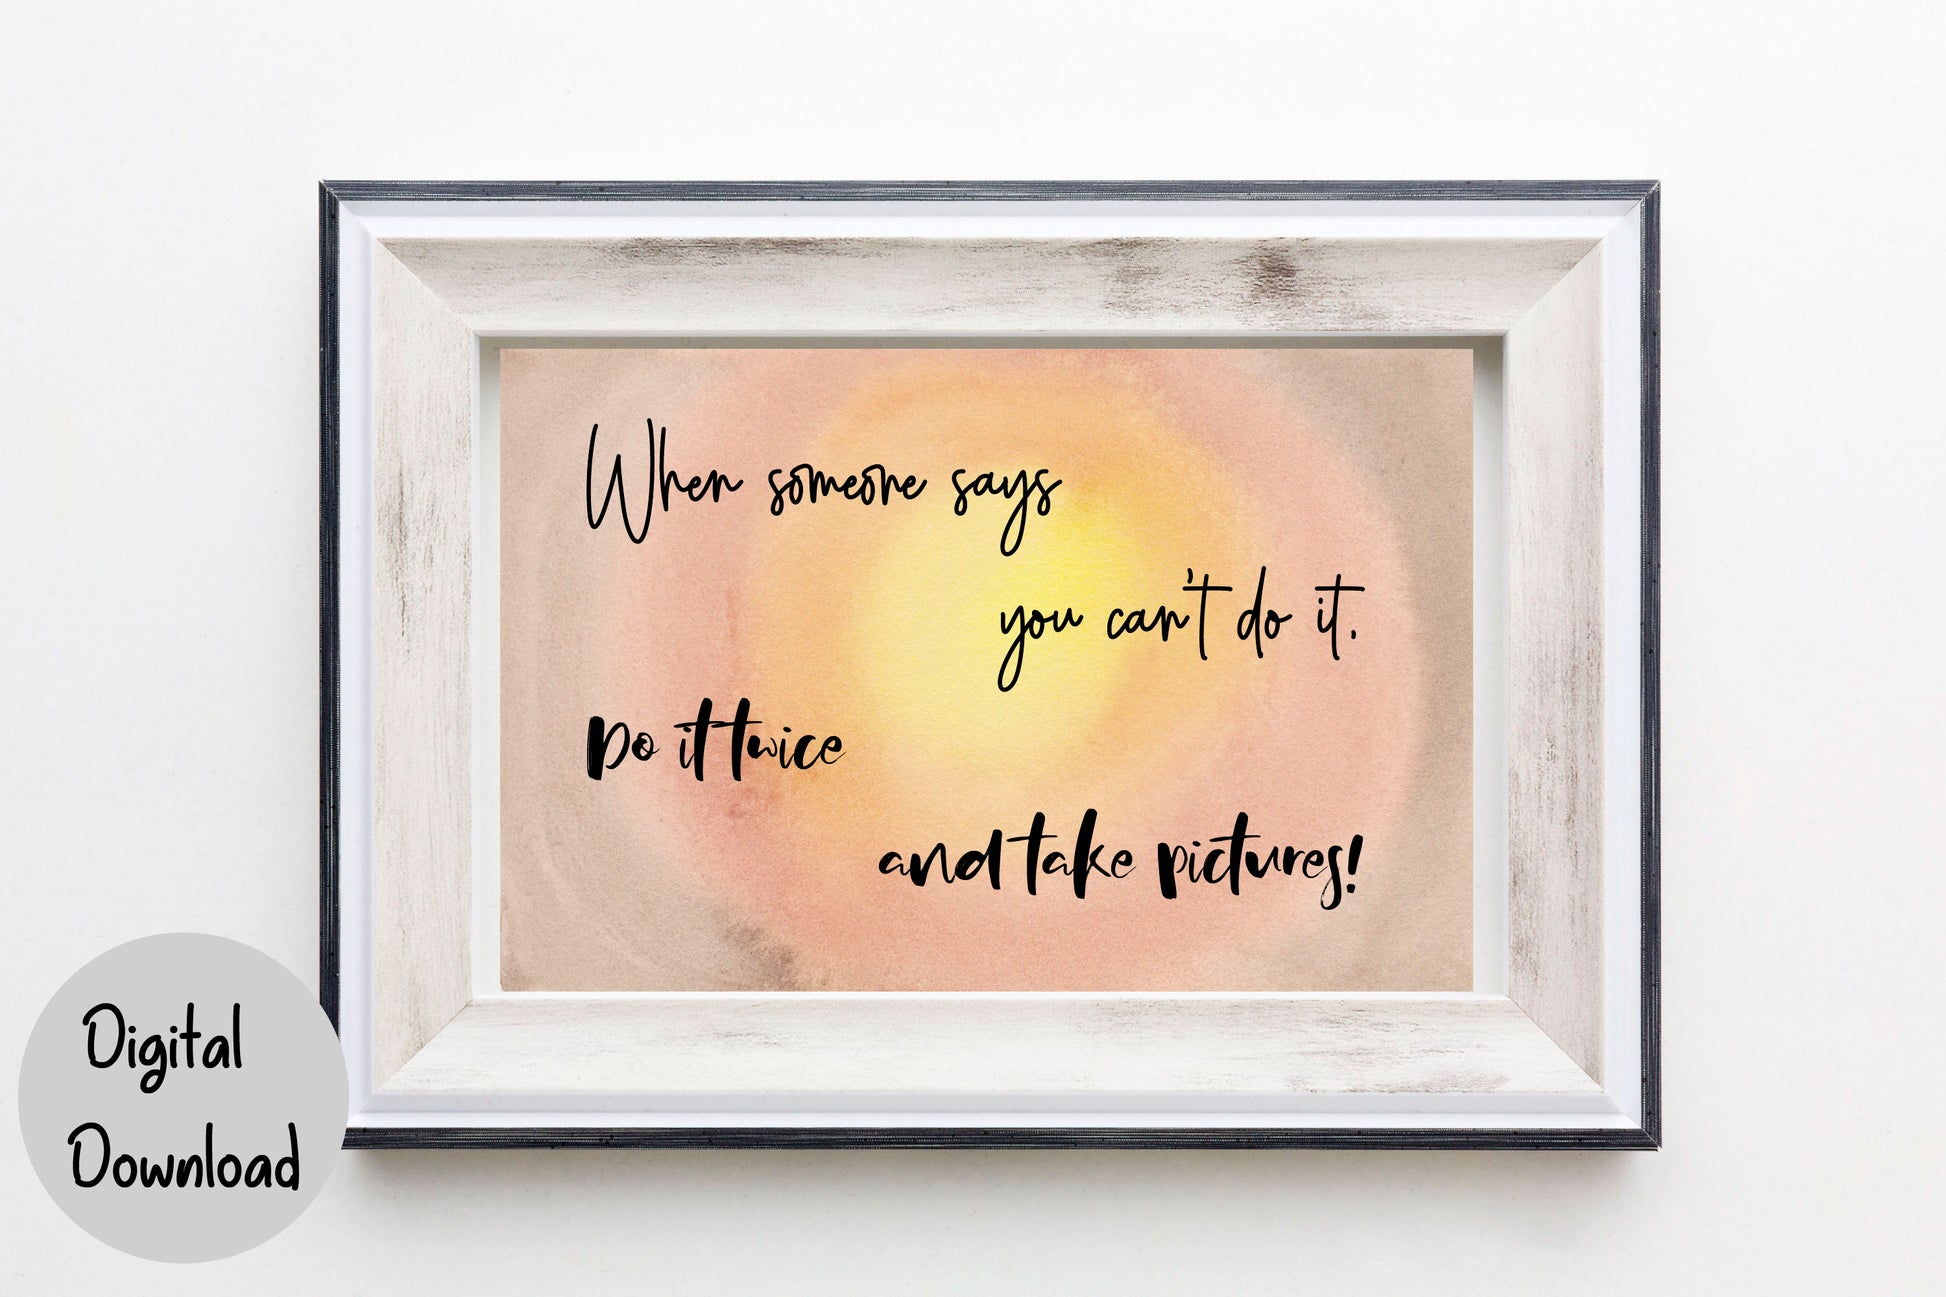 When someone says
you can't do it.
Do it twice
and take pictures!
Digital
Download